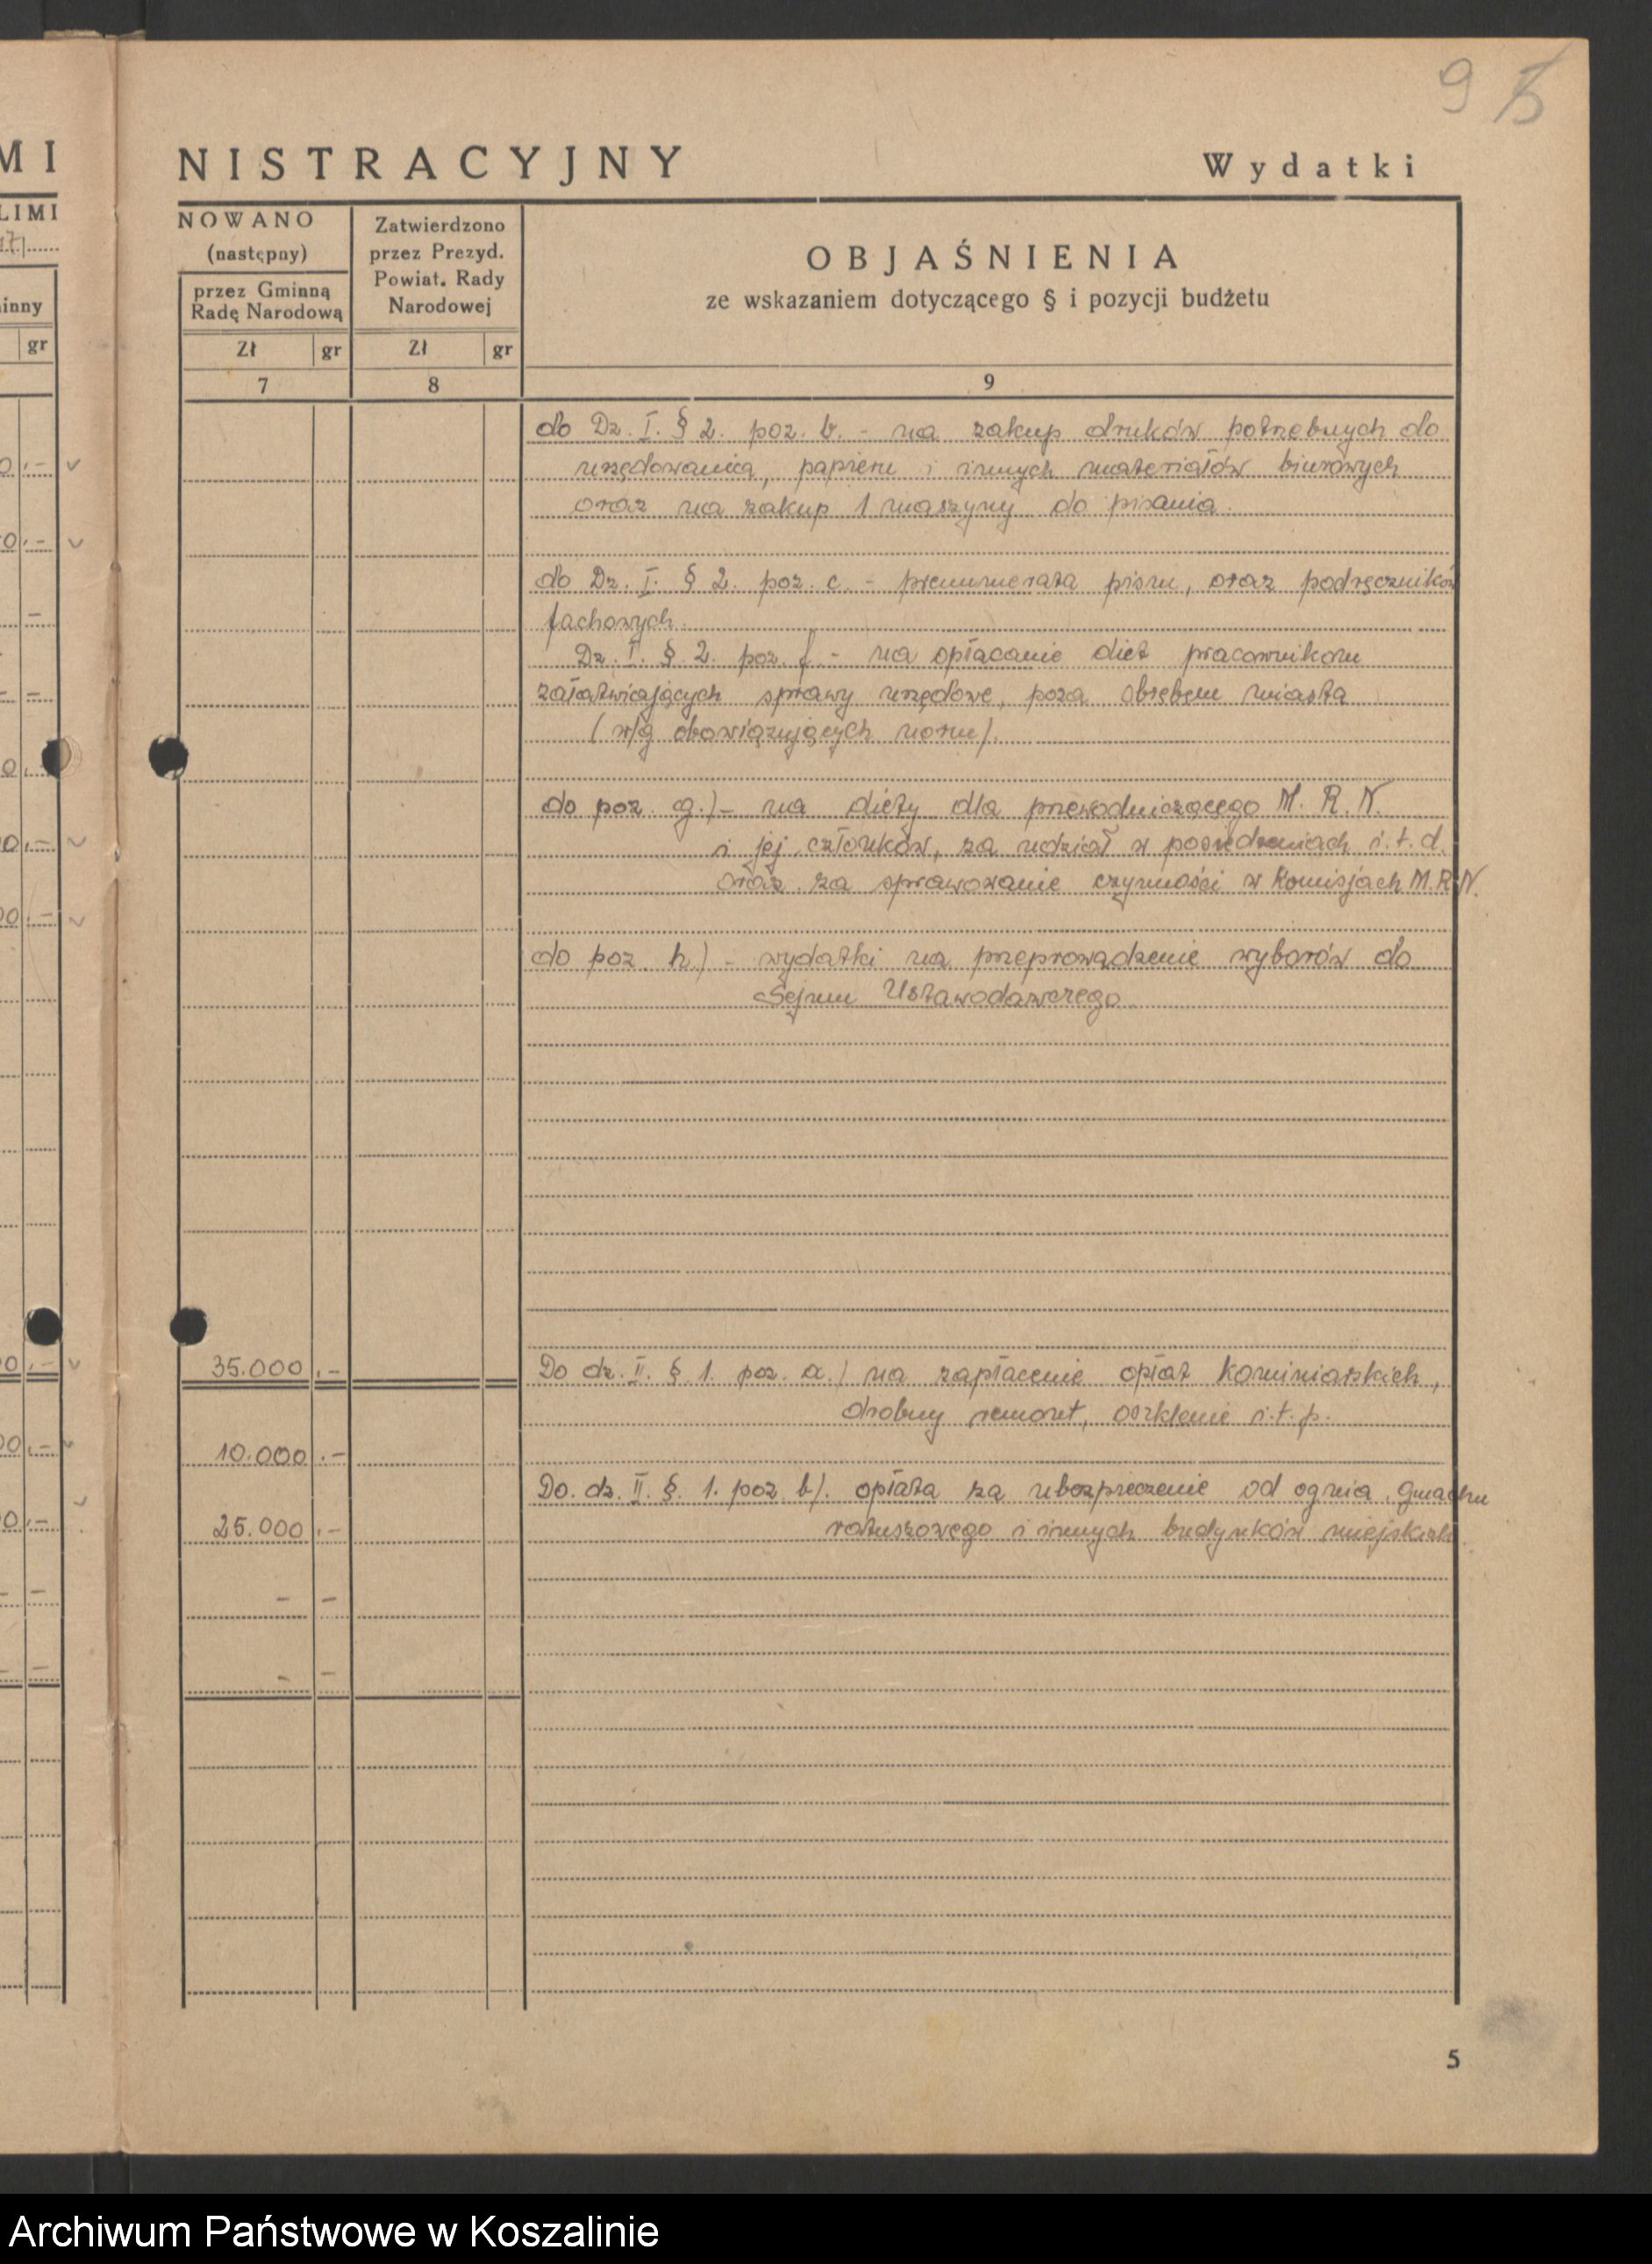 9 5
MI
LIMI
47
inny
gr
NISTRACYJNY
Wydatki
NOWANO
(następny)
przez Gminną
Radę Narodową
Zł gr
7
Zatwierdzono
przez Prezyd.
Powiat. Rady
Narodowej
Zł gr
8
OBJAŚNIENIA
ze wskazaniem dotyczącego § i pozycji budżetu
9
do Dz. I. § 2. poz. b. - na zakup druków potrzebnych do
urzędowania, papieru i innych materiałów biurowych
oraz na zakup 1 maszyny do pisania.
do Dz. I. § 2. poz. c. - prenumerata pism, oraz podręczników
fachowych.
Dz. I. § 2. poz. f. - na opłacanie diet pracownikom
załatwiających sprawy urzędowe, poza obrębem miasta
(w/g obowiązujących norm).
do poz. g.) - na diety dla przewodniczącego M. R. N.
i jej członków, za udział w posiedzeniach i.t.d.
oraz za sprawowanie czynności w Komisjach M.R.N.
do poz. h.) - wydatki na przeprowadzenie wyborów do
Sejmu Ustawodawczego
35.000 .-
Do dz. II. § 1. poz. a.) na zapłacenie opłat kominiarskich,
drobny remont, oszklenie i.t.p.
10.000 .-
Do. dz. II. § 1. poz b). opłata za ubezpieczenie od ognia gmachu
25.000 .-
ratuszowego i innych budynków miejskich.
- -
- -
5
Archiwum Państwowe w Koszalinie